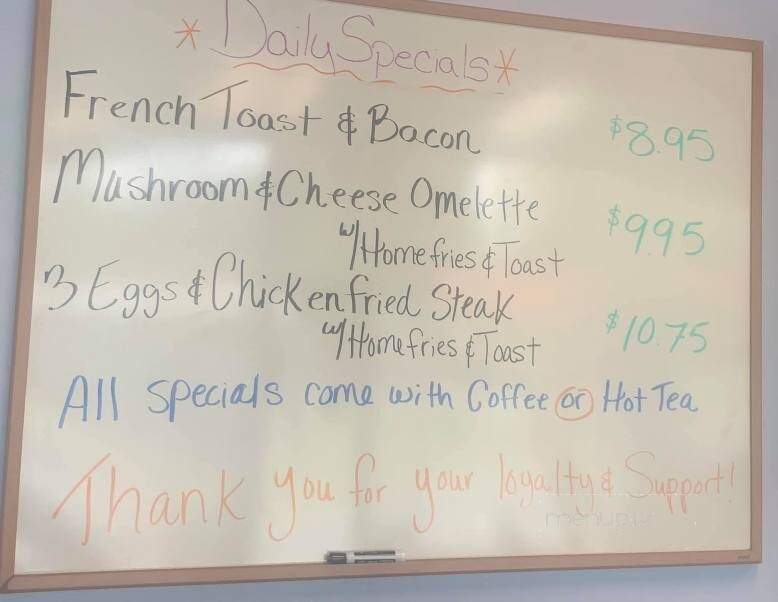 * Daily Specials *
French Toast & Bacon $8.95
Mushroom & Cheese Omelette $9.95
w/ Homefries & Toast
3 Eggs & Chicken fried Steak $10.75
w/ Homefries & Toast
All specials come with Coffee or Hot Tea
Thank you for your loyalty & Support!